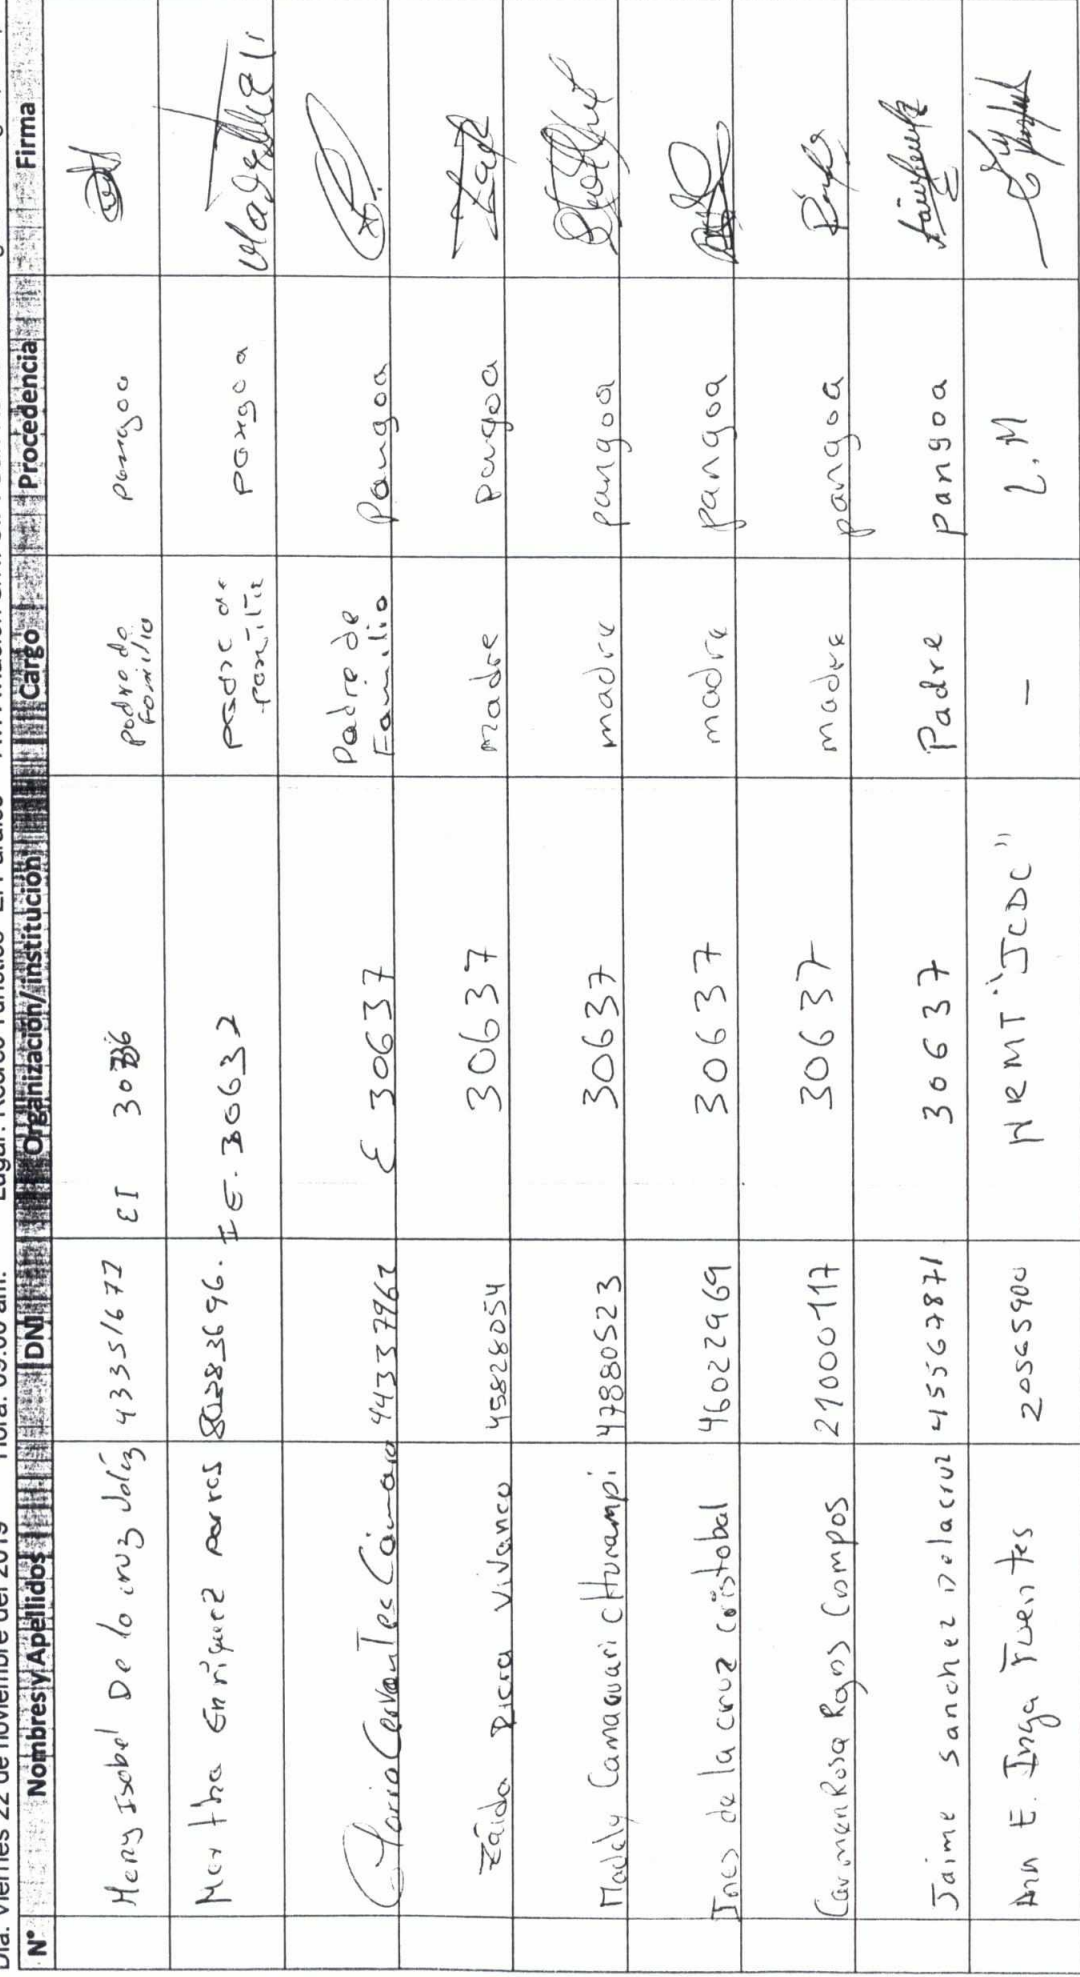 Día: Viernes 22 de noviembre del 2019 Hora: 09:00 am. Lugar: Recreo Turístico
N° Nombres y Apellidos DNI Organización/institución Cargo Procedencia Firma
Mery Isabel De la cruz 43351677 EI padre de familia pangoa
Martha Enriquez porras 80283696. IE. 30637 padre de familia pangoa
Maria Cervantes Cámara 44337967 E 30637 Padre de Familia Pangoa
Zaida Piera Vivanco 45828054 30637 Madre pangoa
Madely Camacuari cHurampi 47880523 30637 madre pangoa
Ines de la cruz cristobal 46022969 30637 madre pangoa
Carmen Rosa Rojas Campos 21000117 30637 madre pangoa
Jaime sanchez Delacruz 45567871 30637 Padre pangoa
Ana E. Inga Fuentes 20565900 HRMT "JCDC" - L.M